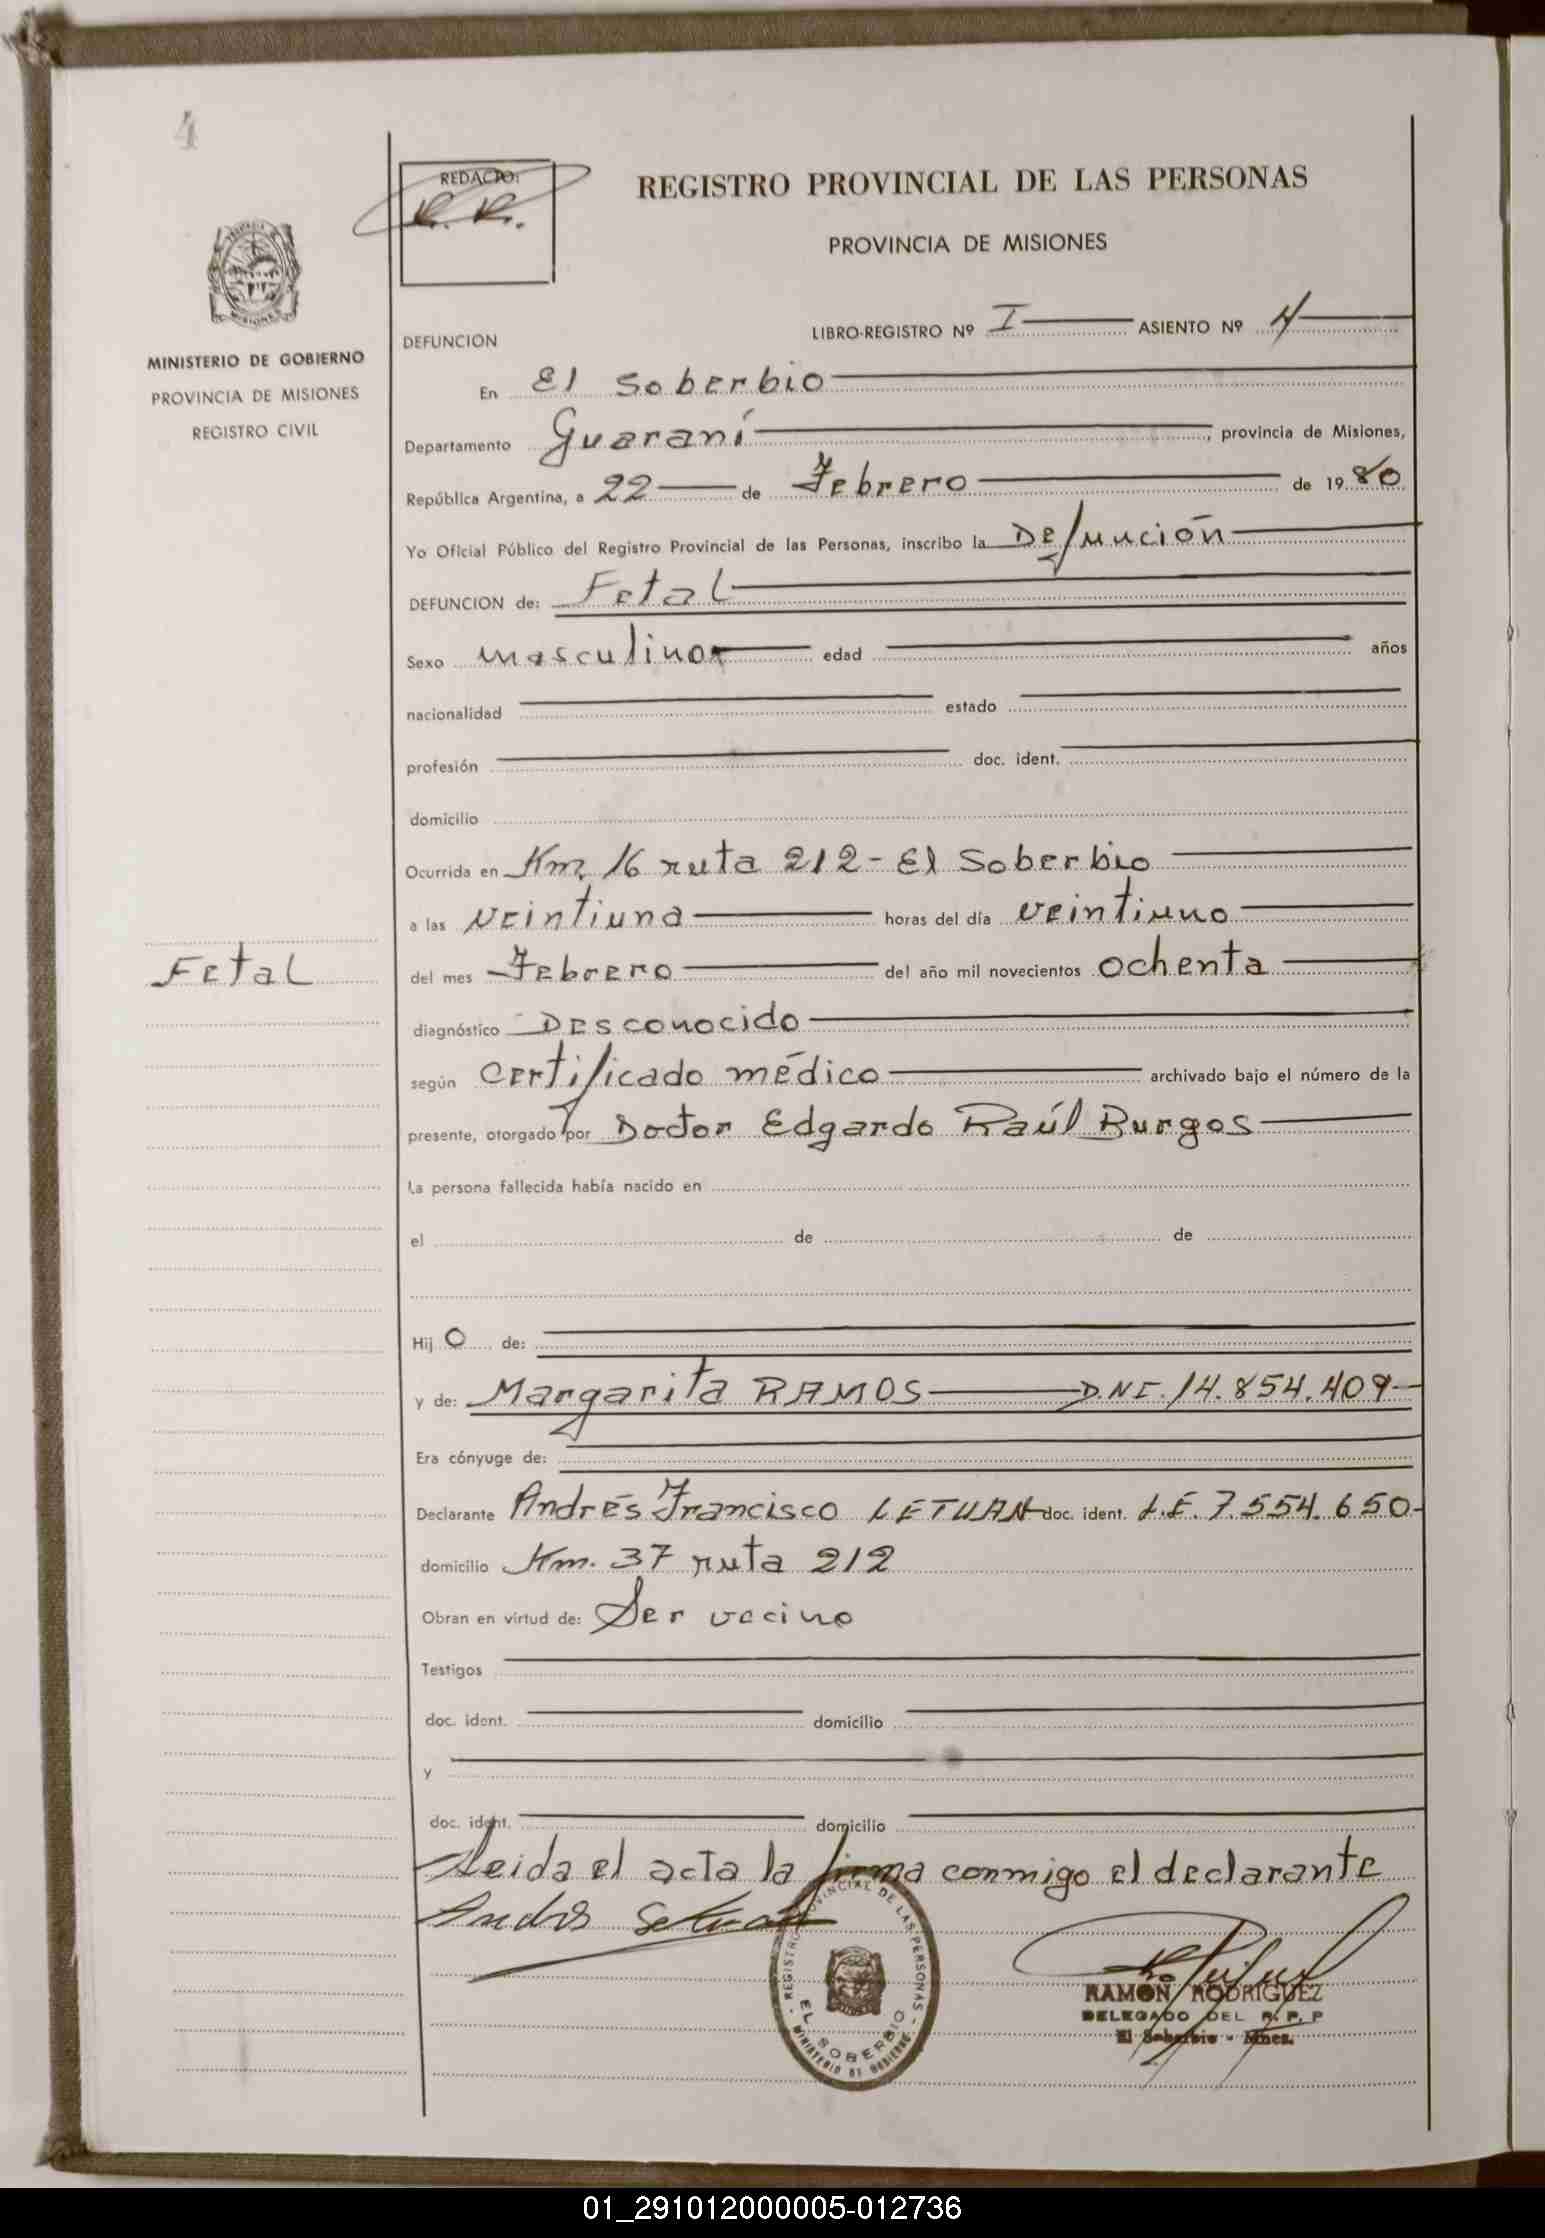 4
REDACTO:
R. R.
REGISTRO PROVINCIAL DE LAS PERSONAS
PROVINCIA DE MISIONES
MISIONES
MINISTERIO DE GOBIERNO
PROVINCIA DE MISIONES
REGISTRO CIVIL
DEFUNCION
LIBRO-REGISTRO Nº I ASIENTO Nº 4
En El Soberbio
Departamento Guaraní, provincia de Misiones,
República Argentina, a 22 de Febrero de 1980
Yo Oficial Público del Registro Provincial de las Personas, inscribo la Defunción
DEFUNCION de: Fetal
Sexo masculino edad años
nacionalidad estado
profesión doc. ident.
domicilio
Ocurrida en Km, 16 ruta 212 - El Soberbio
a las veintiuna horas del día veintiuno
Fetal
del mes Febrero del año mil novecientos ochenta
diagnóstico Desconocido
según certificado médico archivado bajo el número de la
presente, otorgado por Doctor Edgardo Raúl Burgos
La persona fallecida había nacido en
el de de
Hij o de:
y de: Margarita RAMOS D.N.I. 14.854.409
Era cónyuge de:
Declarante Andrés Francisco LETUAN doc. ident. L.E. 7.554.650
domicilio Km. 37 ruta 212
Obran en virtud de: Ser vecino
Testigos
doc. ident. domicilio
y
doc. ident. domicilio
Leida el acta la firma conmigo el declarante
REGISTRO PROVINCIAL DE LAS PERSONAS
EL SOBERBIO
MINISTERIO DE GOBIERNO
RAMON RODRIGUEZ
DELEGADO DEL R. P. P
El Soberbio - Mnes.
01_291012000005-012736